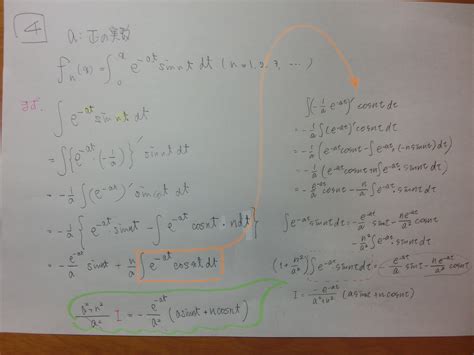 4
a: 正の実数
fₙ(x) = ∫₀ˣ e^{-at} sin nt dt (n = 1, 2, 3, …)
まず、
∫ e^{-at} sin nt dt
= ∫ {e^{-at}・(-1/a)}' sin nt dt
= -1/a ∫ (e^{-at})' sin nt dt
= -1/a { e^{-at} sin nt - ∫ e^{-at} cos nt・n dt }
= -e^{-at}/a sin nt + n/a ∫ e^{-at} cos nt dt
(a²+n²)/a² I = -e^{-at}/a² (a sin nt + n cos nt)
∫ (-1/a e^{-at})' cos nt dt
= -1/a ∫ (e^{-at})' cos nt dt
= -1/a (e^{-at} cos nt - ∫ e^{-at}・(-n sin nt) dt)
= -1/a (e^{-at} cos nt + n ∫ e^{-at} sin nt dt)
= -e^{-at}/a cos nt - n/a ∫ e^{-at} sin nt dt
∫ e^{-at} sin nt dt = -e^{-at}/a sin nt - n e^{-at}/a² cos nt
- n²/a² ∫ e^{-at} sin nt dt
(1 + n²/a²) ∫ e^{-at} sin nt dt = -e^{-at}/a sin nt - n e^{-at}/a² cos nt
I = -e^{-at}/(a²+n²) (a sin nt + n cos nt)